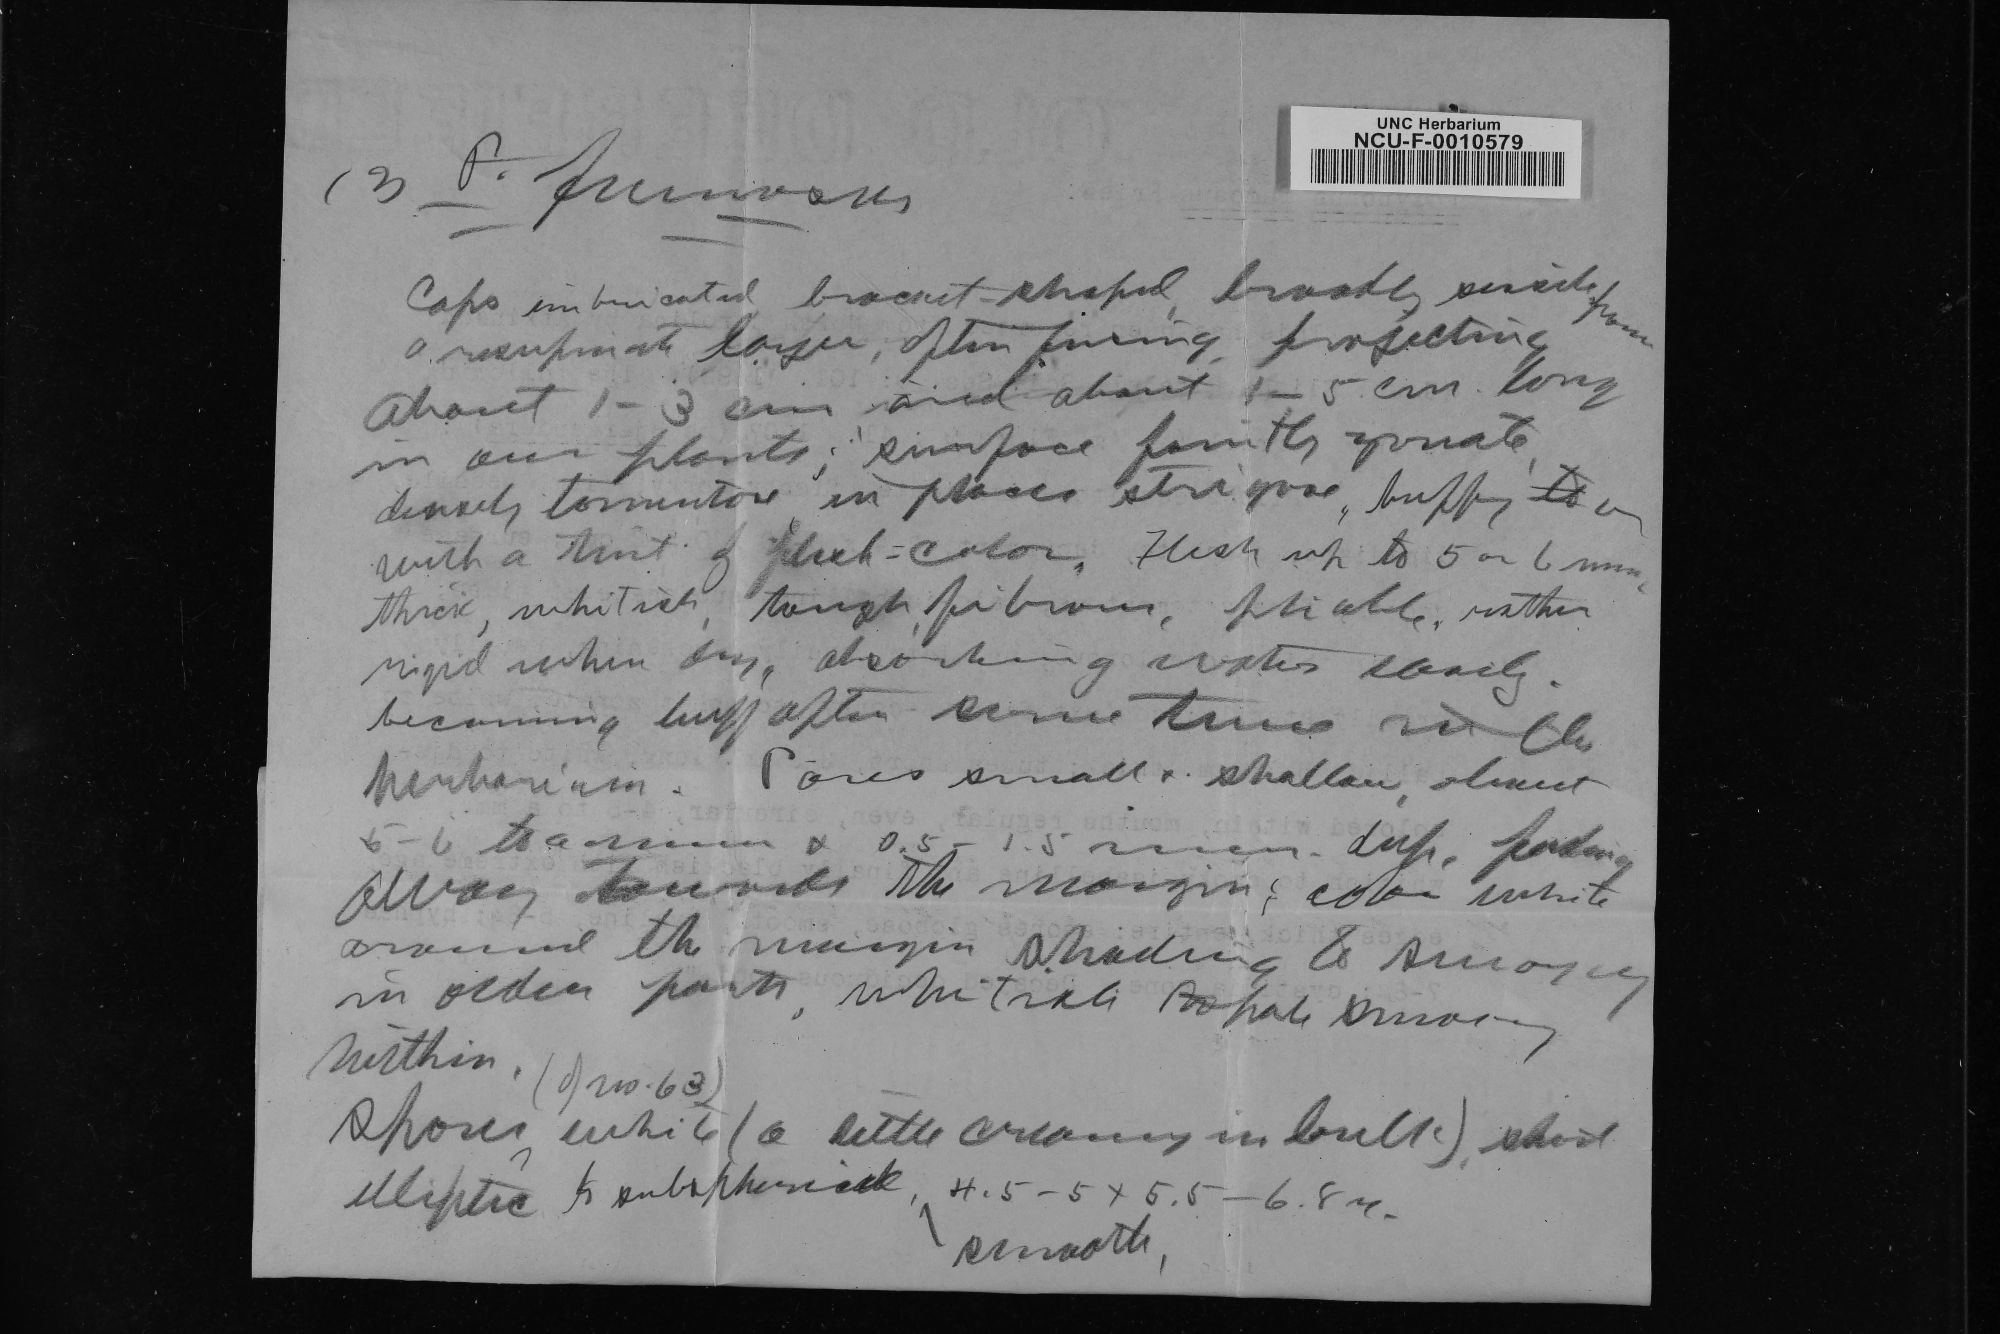 UNC Herbarium
NCU-F-0010579
(3) P. fumosus
Caps imbricated, bracket-shaped, broadly sessile from
a resupinate layer, often fusing, projecting
about 1-3 cm and about 1-5 cm. long
in our plants; surface faintly zonate,
densely tomentose, in places strigose, buffy to
with a tint of flesh-color. Flesh up to 5 or 6 mm.
thick, whitish, tough, fibrous, pliable, rather
rigid when dry, absorbing water easily.
becoming buff after some time in the
herbarium. Pores small & shallow, about
5-6 to a mm & 0.5-1.5 mm. deep, fading
away towards the margin; color white
around the margin shading to smoky
in older parts, whitish to pale smoky
within.
(of no. 63)
Spores white (a little creamy in bulk), short
elliptic to subspherical, 4.5-5 x 5.5-6.8 µ.
smooth,